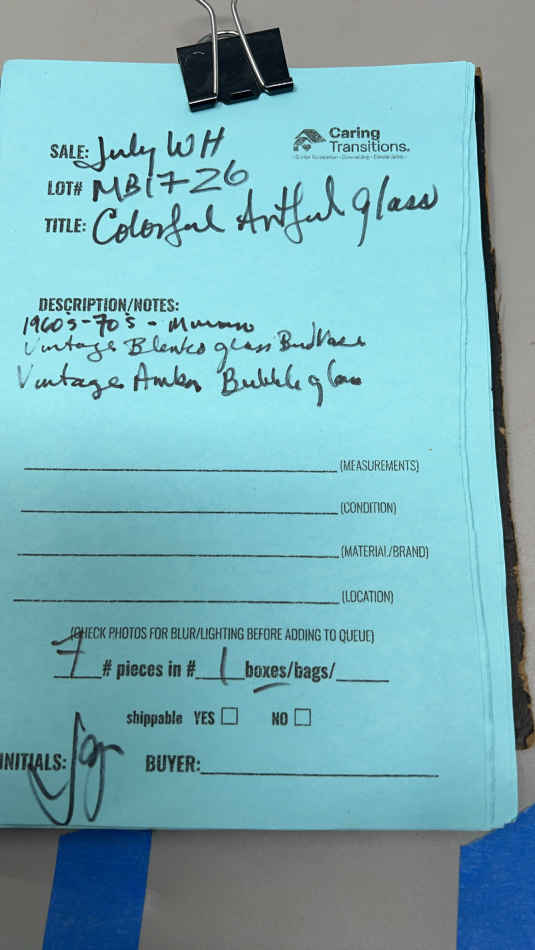 Caring
Transitions.
SALE: July WH
LOT# MB17-26
TITLE: Colorful Artful glass
DESCRIPTION/NOTES:
1960's-70's - Murano
Vintage Blenko glass Bud Vase
Vintage Amber Bubble glass
(MEASUREMENTS)
(CONDITION)
(MATERIAL/BRAND)
(LOCATION)
(CHECK PHOTOS FOR BLUR/LIGHTING BEFORE ADDING TO QUEUE)
7 # pieces in # 1 boxes/bags/
shippable YES NO
INITIALS:
BUYER: